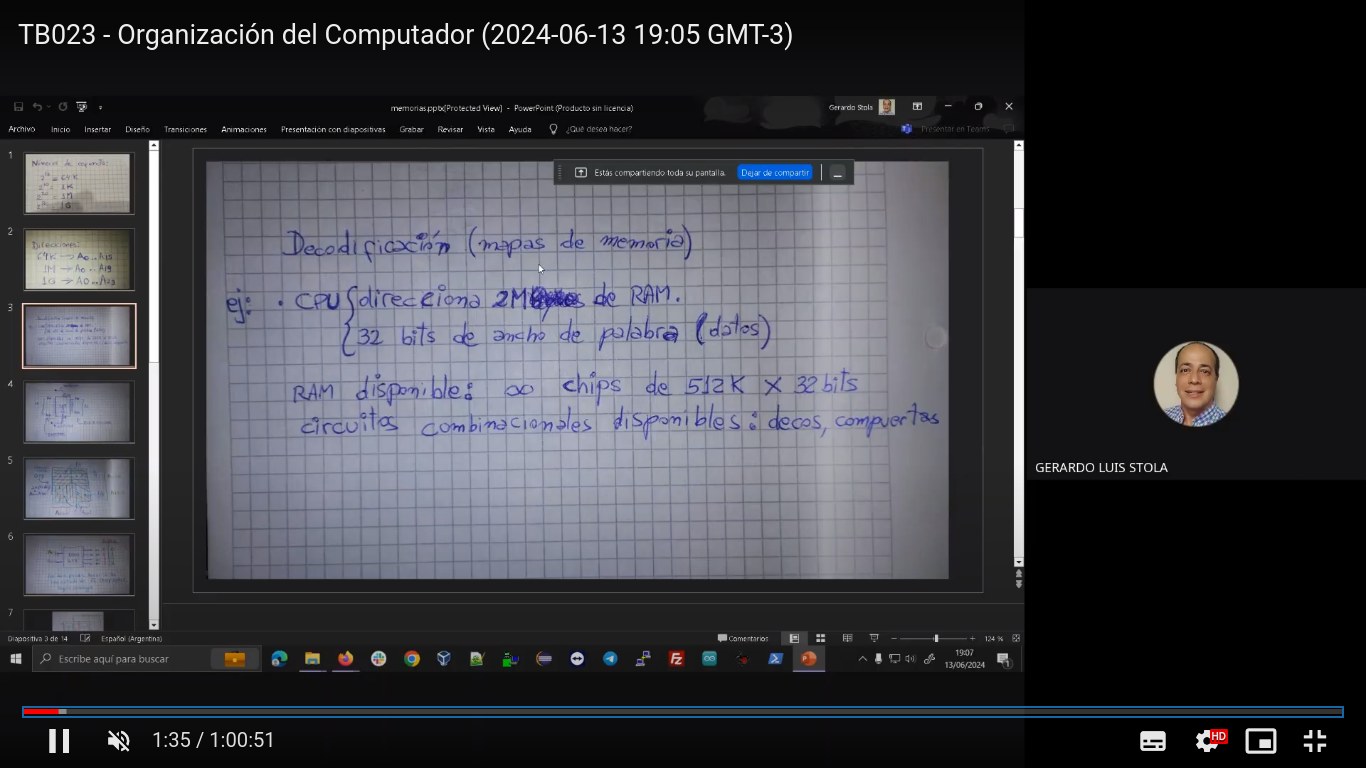 TB023 - Organización del Computador (2024-06-13 19:05 GMT-3)
memorias.pptx[Protected View] - PowerPoint (Producto sin licencia)
Gerardo Stola
Archivo Inicio Insertar Diseño Transiciones Animaciones Presentación con diapositivas Grabar Revisar Vista Ayuda ¿Qué desea hacer?
Presentar en Teams
Estás compartiendo toda su pantalla. Dejar de compartir
1
2
3
4
5
6
7
Decodificación (mapas de memoria)
ej: • CPU { direcciona 2M de RAM.
32 bits de ancho de palabra (datos)
RAM disponible: ∞ chips de 512K X 32 bits
circuitos combinacionales disponibles: decos, compuertas
GERARDO LUIS STOLA
Diapositiva 3 de 14 Español (Argentina)
Comentarios
124 %
Escribe aquí para buscar
19:07
13/06/2024
1:35 / 1:00:51
HD